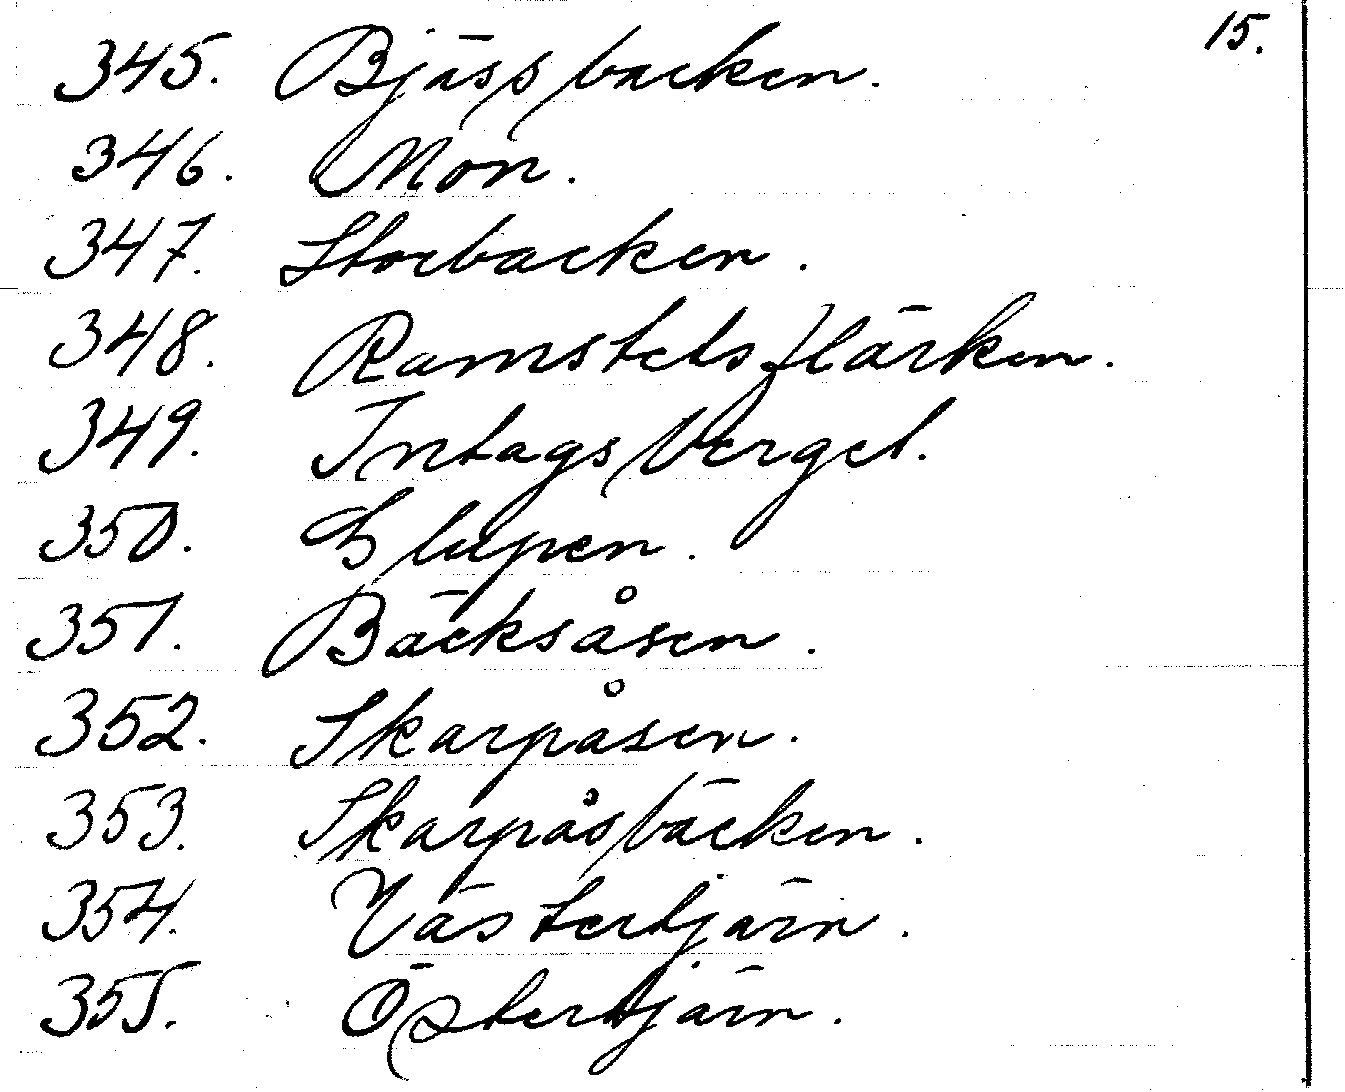 15.
345. Bjässbacken.
346. Mon.
347. Storbacken.
348. Ramstetsflärken.
349. Intagsberget.
350. Slupen.
351. Bäcksåsen.
352. Skarpåsen.
353. Skarpåsbäcken.
354. Västertjärn.
355. Östertjärn.